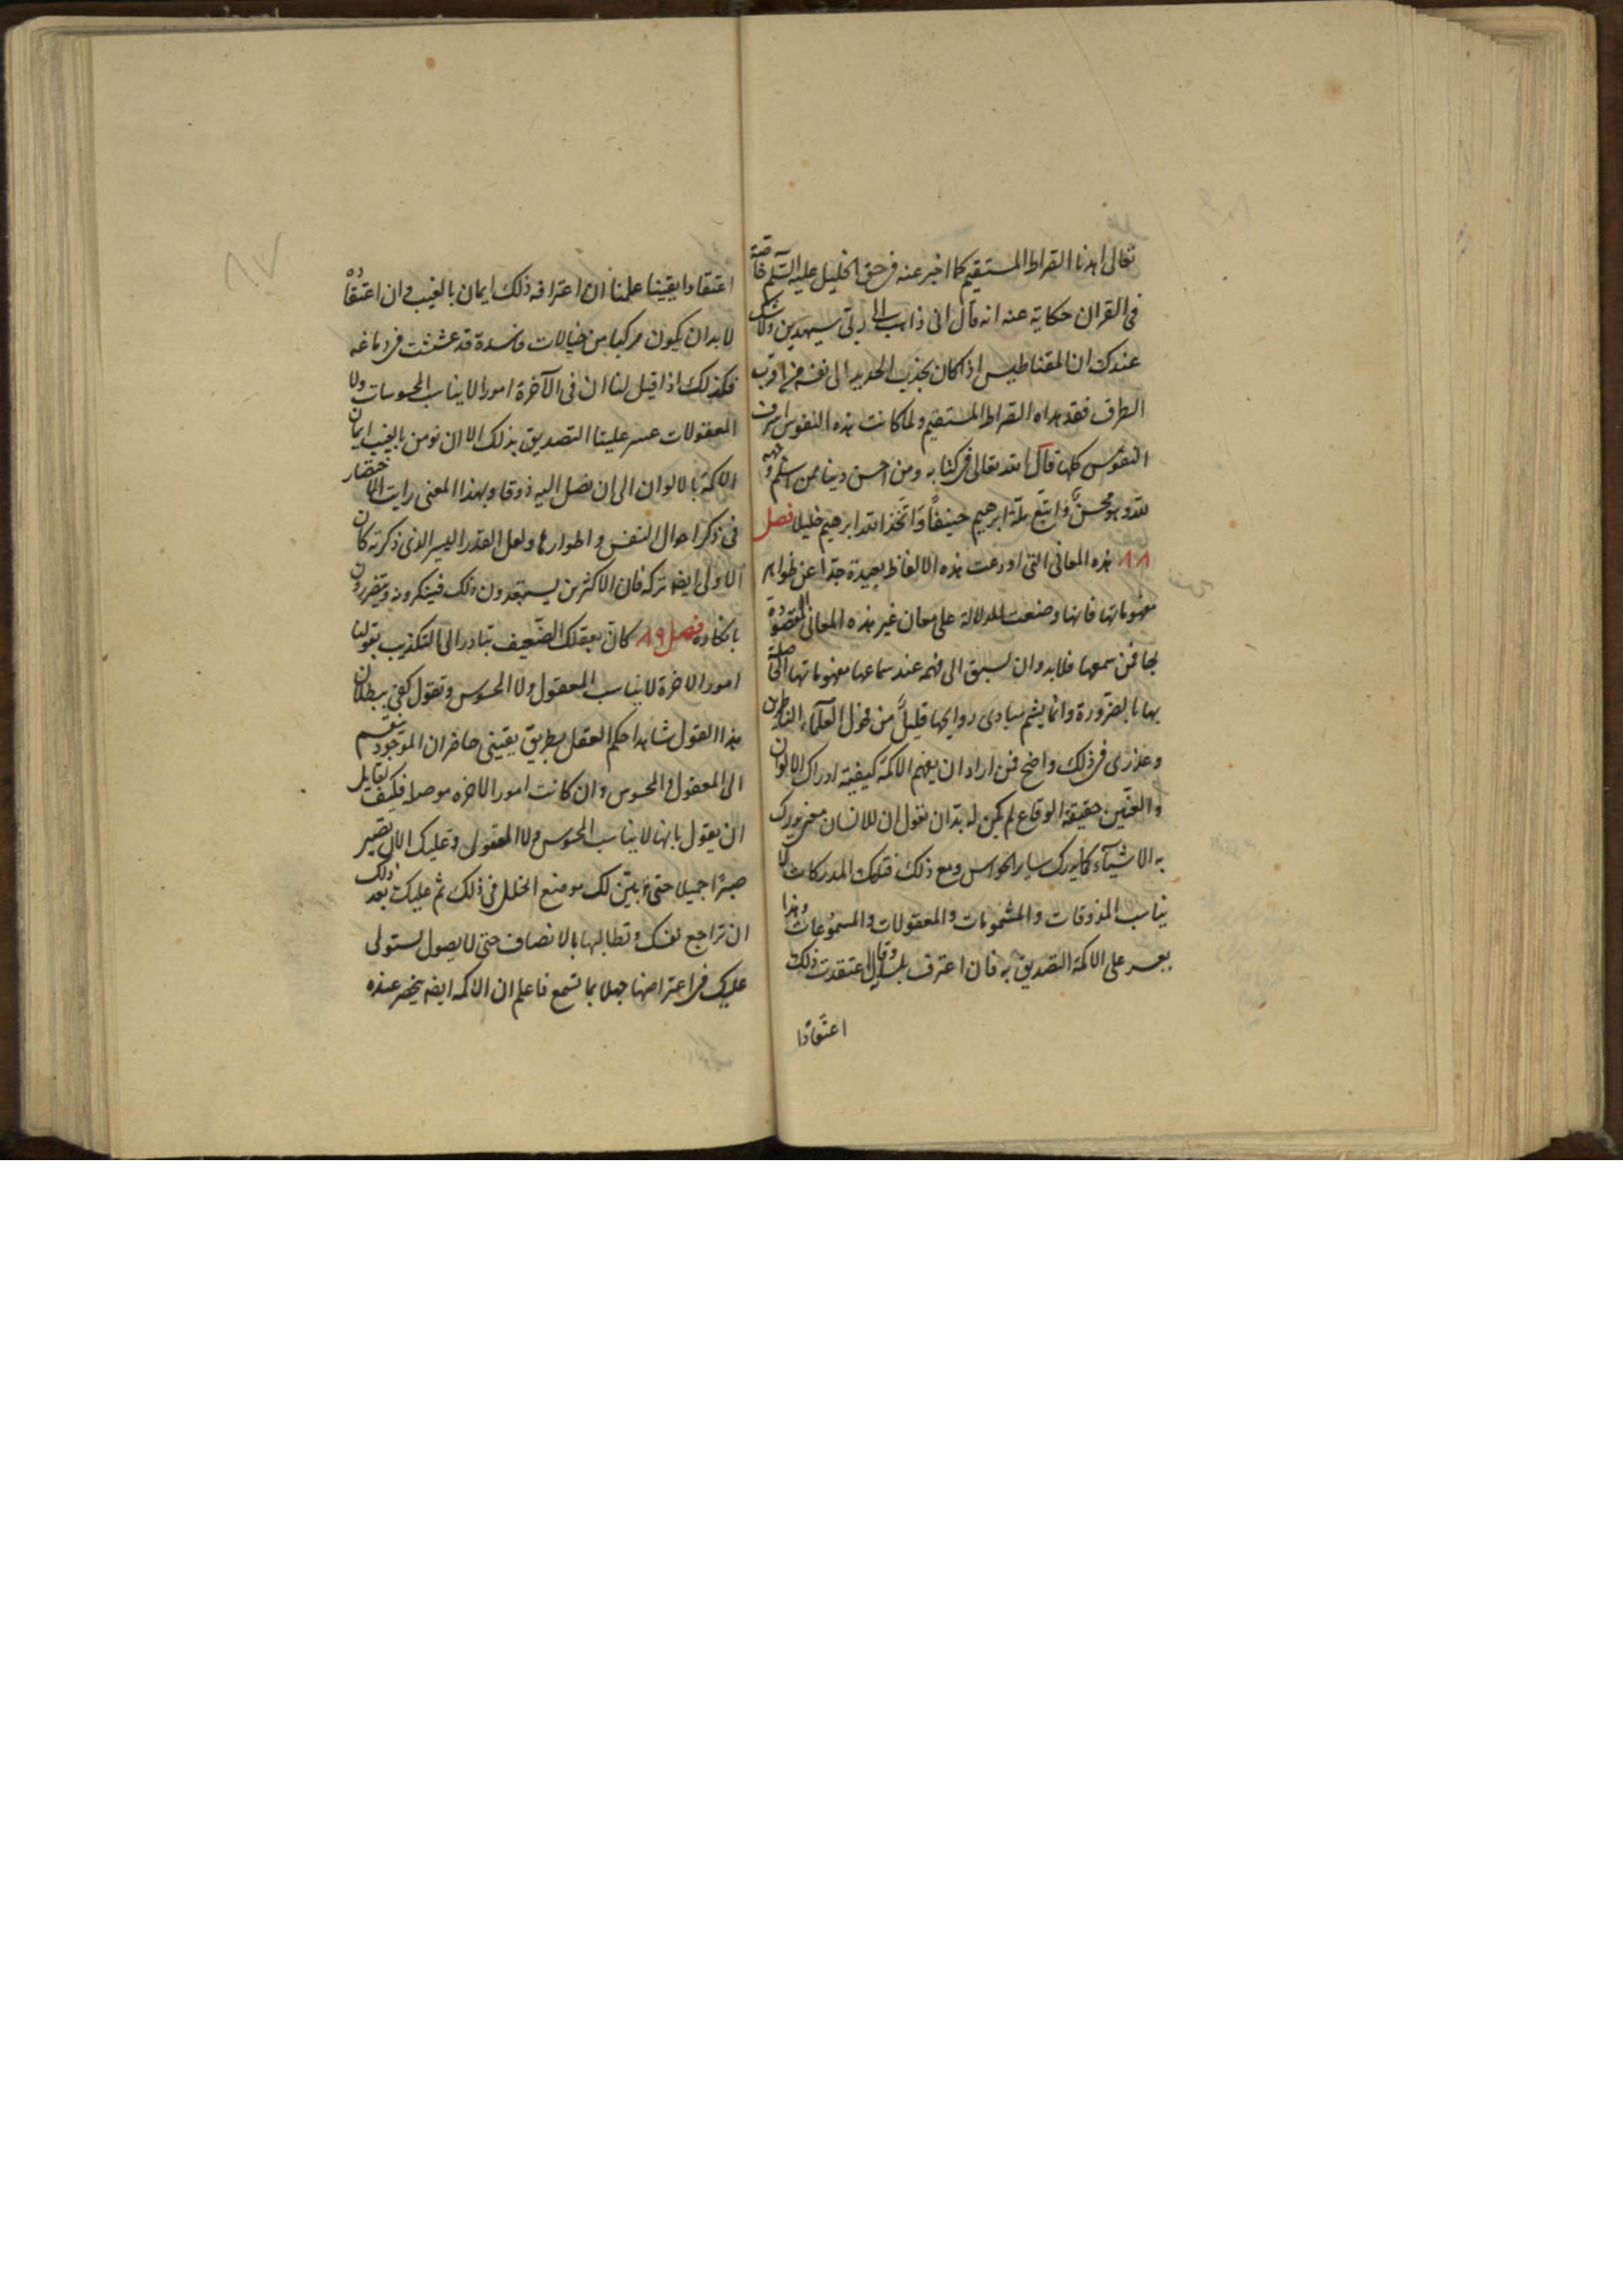 تعالى اهدنا الصراط المستقيم كما اخبر عنه فى حق الخليل عليه السلم خاصة
فى القران حكاية عنه انه قال انى ذاهب الى ربى سيهدين ولا شك
عندك ان المقناطيس اذا كان يجذب الحديد الى نفسه من اقرب
الطرق فقد هداه الصراط المستقيم ولما كانت هذه النفوس اشرف
النفوس كلها قال الله تعالى فى كتابه ومن احسن دينا ممن اسلم وجهه
لله وهو محسن واتبع ملة ابرهيم حنيفا واتخذ الله ابرهيم خليلا فصل
٨٨ هذه المعانى التى اودعت هذه الالفاظ بعيدة جدا عن ظواهر
مفهوماتها فانها وضعت للدلالة على معان غير هذه المعانى المقصودة
بها فمن سمعها فلابد وان يسبق الى فهمه عند سماعها مفهوماتها الخاصة
بها بالضرورة وانما يشم مبادى روايحها قليل من فحول العلماء الناظرين
وعذرى فى ذلك واضح فمن اراد ان يفهم الاكمه كيفية ادراك الالوان
والعنين حقيقة الوقاع لم يكن له بد ان نقول ان للانسان معنى يدرك
به الاشياء كما يدرك ساير الحواس ومع ذلك فتلك المدركات لا
يناسب المذوقات والمشمومات والمعقولات والمسموعات وهذا
يعسر على الاكمه التصديق به فان اعترف بلسانه وقال اعتقدت ذلك
اعتقادا
اعتقادا يقينا علمنا ان اعترافه ذلك ايمان بالغيب وان اعتقاده
لا بد ان يكون مركبا من خيالات فاسدة قد عششت فى دماغه
فكذلك اذا قيل لنا ان فى الآخرة امورا لا يناسب المحسوسات ولا
المعقولات عسر علينا التصديق بذلك الا ان نومن بالغيب ايمان
الاكمه بالالوان الى ان نصل اليه ذوقا وبهذا المعنى رايت الاختصار
فى ذكر احوال النفس واطوارها ولعل القدر اليسير الذى ذكرته كان
الاولى ايضا تركه فان الاكثرين يستبعدون ذلك فينكرونه ويتضررون
بانكاره فصل ٨٩ كان بعقلك الضعيف تبادر الى التكذيب بقولنا
امور الاخرة لا يناسب المعقول ولا المحسوس وتقول كفى ببطلان
هذا القول شاهدا حكم العقل بطريق يقينى حاضر ان الموجود ينقسم
الى المعقول والمحسوس وان كانت امور الاخره موجودا فكيف لقايل
ان يقول بانها لا يناسب المحسوس ولا المعقول وعليك الان تصبر
صبرا جميلا حتى نبين لك موضع الخلل فى ذلك ثم عليك بعد ذلك
ان تراجع نفسك وتطالبها بالانصاف حتى لا يصول يستولى
عليك فى اعتراضها جهلا بما تسمع فاعلم ان الاكمه ايضا ينحصر عنده